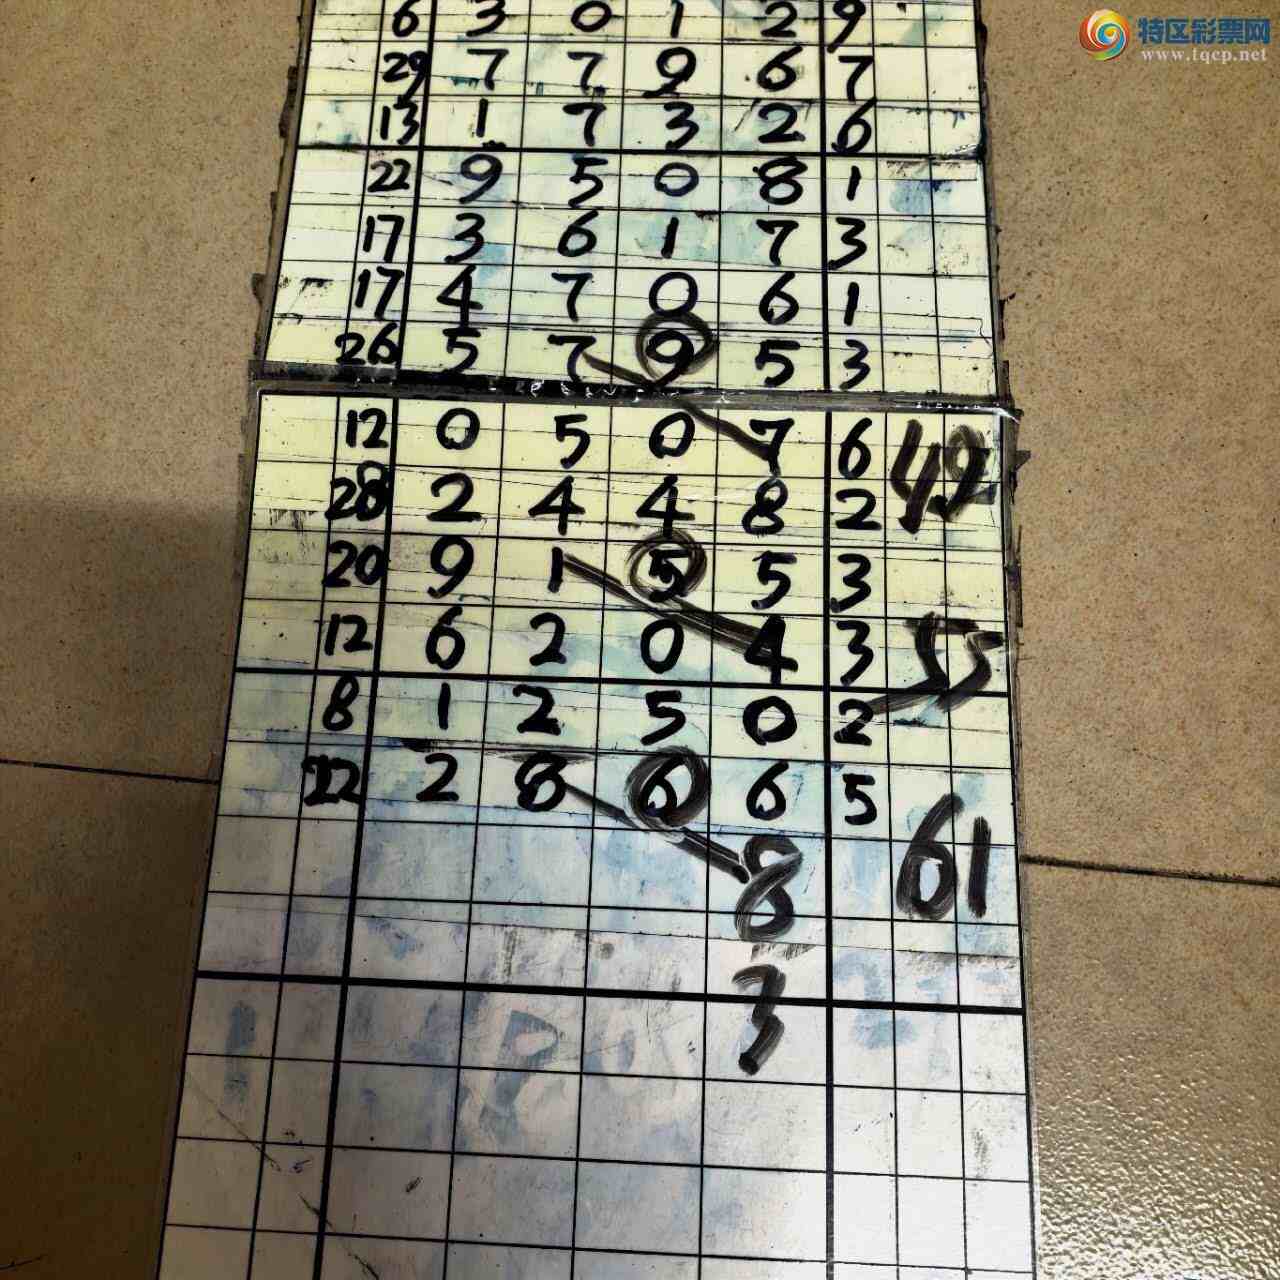 特区彩票网
www.tqcp.net
6 3 0 1 2 9
29 7 7 9 6 7
13 1 7 3 2 6
22 9 5 0 8 1
17 3 6 1 7 3
17 4 7 0 6 1
26 5 7 9 5 3
12 0 5 0 7 6 49
28 2 4 4 8 2
20 9 1 5 5 3
12 6 2 0 4 3 55
8 1 2 5 0 2
22 2 8 6 6 5
8 61
3